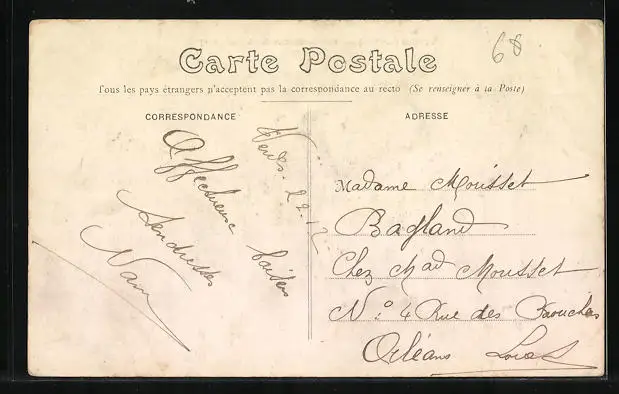 68
Carte Postale
Tous les pays étrangers n'acceptent pas la correspondance au recto (Se renseigner à la Poste)
CORRESPONDANCE
ADRESSE
22-12
Affectueuse
baisers
tendresses
Madame Mousset
Bagland
Chez Mad Mousset
N:o 4 Rue des
Orléans Loiret